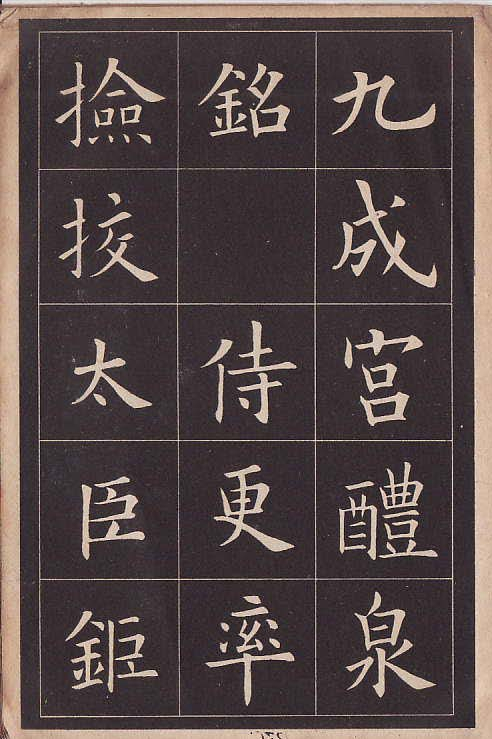 九成宮醴泉
銘 侍更率
撿挍太臣鉅